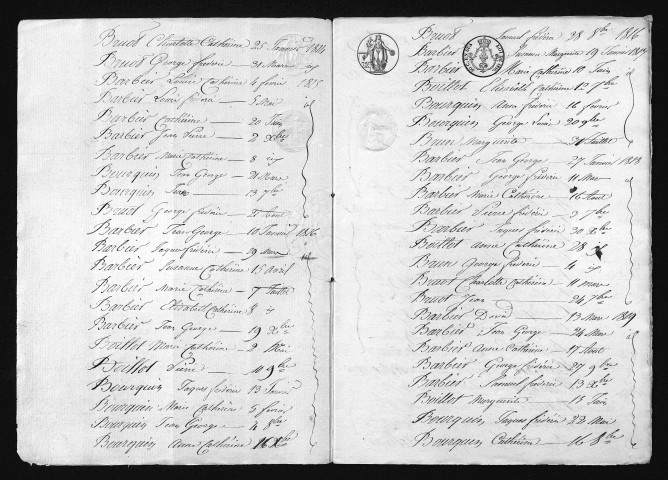 Bruot Charlotte Catherine 25 Janvier 1814
Bruot George frédéric 21 Mars
Barbier Louise Catherine 4 fevrier 1815
Barbier Louis frédéric — 5 Mai id
Barbier Catherine — 20 Juin
Barbier Jean Pierre — 2 Xbre
Barbier Marie Catherine — 8 id
Bourquin Jean George — 21 Mars
Bourquin — 13 7bre
Bruot George frédéric — Aout
Barbier Jean George — 10 Janvier 1816
Barbier Jaques frédéric — 19 Mars
Barbier Susanne Catherine 15 avril
Barbier Marie Catherine — 7 Juillet
Barbier Elisabeth Catherine 8 id
Barbier Jean George — 19 Xbre
Boillot Marie Catherine — 2 Mai
Boillot Pierre — 11 9bre
Bourquin Jaques frédéric 13 Janvier
Bourquin Marie Catherine 5 fevrier
Bourquin Jean George — 4 8bre
Bourquin Anne Catherine 16 Xbre
Bruot Samuel frédéric — 28 8bre 1816
Barbier Susanne Marguerite 19 Janvier 1817
Barbier Marie Catherine 10 Juin
Boillot Elisabeth Catherine 12 7bre
Bourquin Anne frédéric 16 fevrier
Bourquin George Louis 20 9bre
Brun Marguerite — 31 Juillet
Barbier Jean George — 27 Janvier 1818
Barbier George frédéric 11 Mars
Barbier Marie Catherine — 16 Aout
Barbier Pierre frédéric — 3 7bre
Barbier Jaques frédéric 20 Xbre
Boillot Anne Catherine 28 id
Brun George frédéric — 4 id
Bruot Charlotte Catherine 11 mars
Bruot Jean — 24 7bre
Barbier David — 13 Mars 1819
Barbier Jean George — 24 Mars
Barbier Anne Catherine — 17 Aout
Barbier George frédéric — 27 9bre
Barbier Samuel frédéric — 13 Xbre
Boillot Marguerite — 15 Juin
Bourquin Jaques frédéric 22 Mai
Bourquin Catherine — 16 8bre